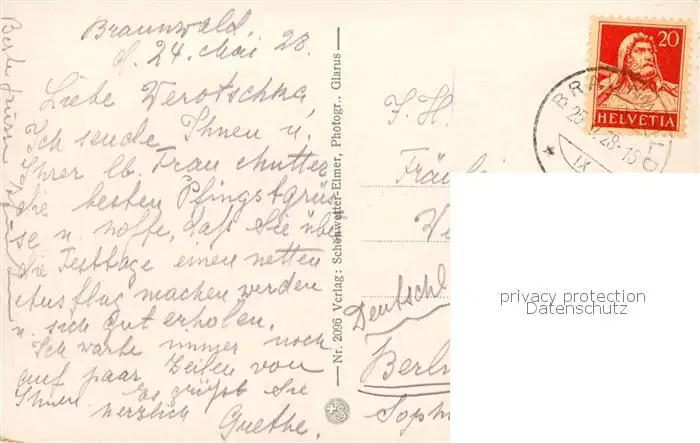 Braunwald,
d. 24. Mai, 28.
Liebe Verotschka,
Ich sende Ihnen u.
Ihrer lb. Frau Mutter
die besten Pfingstgrüs-
se u. hoffe, daß Sie über
die Festtage einen netten
Ausflug machen werden
u. sich gut erholen.
Ich warte immer noch
auf paar Zeilen von
Ihnen. Es grüßt Sie
herzlich Grethe.
Nr. 2096 Verlag: Schönwetter-Elmer, Photogr., Glarus
20
HELVETIA
25. V. 28-18
IX
Deutschl
Berlin
Soph
privacy protection
Datenschutz